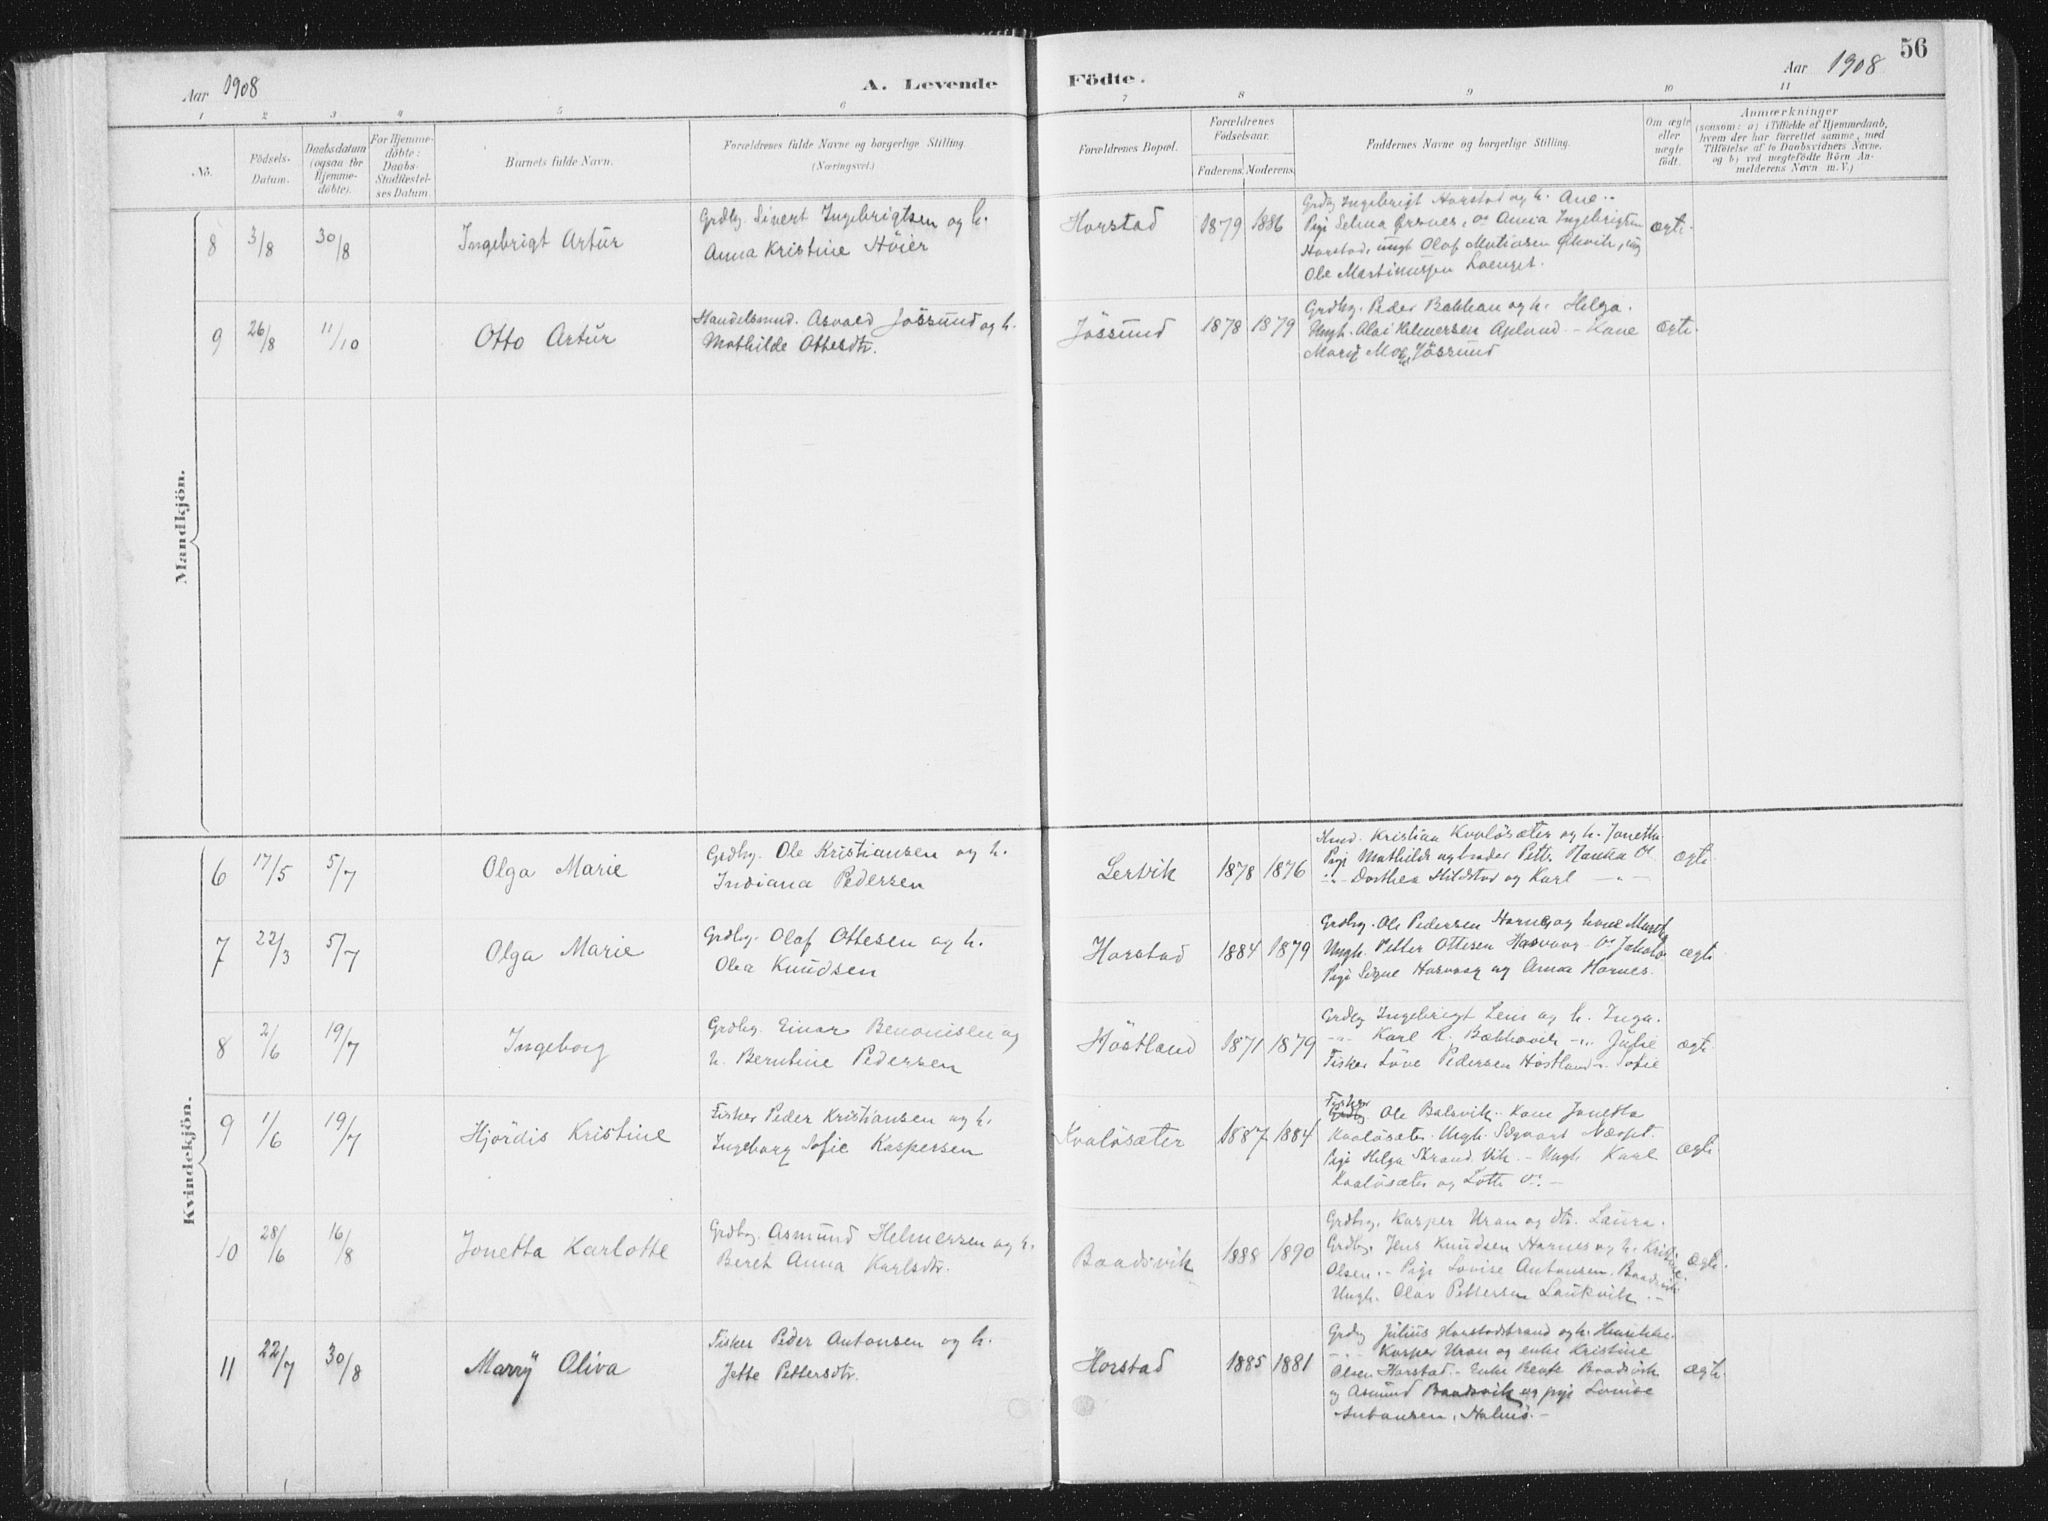 Aar 1908
A. Levende
Födte.
Aar 1908
56
1 2 3 4 5 6 7 8 9 10 11
No.
Födsels-Datum.
Daabsdatum (ogsaa for Hjemme-döbte).
For Hjemme-döbte: Daabs-Stadfæstelses Datum.
Barnets fulde Navn.
Forældrenes fulde Navne og borgerlige Stilling. (Næringsvei.)
Forældrenes Bopæl.
Forældrenes Födselsaar.
Faderens. Moderens.
Faddernes Navne og borgerlige Stilling.
Om ægte eller uægte födt.
Anmærkninger
(saasom: a) i Tilfælde af Hjemmedaab, hvem der har forrettet samme, med Tilföielse af to Daabsvidners Navne, og b) ved uægtefödte Börn Anmelderens Navn m. V.)
Mandkjön.
8 3/8 30/8 Ingebrigt Artur
Grdbg. Sivert Ingebrigtsen og h.
Anna Kristine Höier
Horstad 1879 1886
Grdbg Ingebrigt Horstad og h. Ane
Pige Selma Ørsnes, Anna Ingebrigtsen
Horstad, ungk Olaf Matiasen
Ole Martinussen
ægte
9 26/8 11/10 Otto Artur
Handelsmnd. Asvald Jössund og h.
Mathilde Ottesdtr.
Jössund 1878 1879
Grdbg. Peder Bakkan og h. Helga.
Ungk. Olai Helmersen Aplund - Kone
Jössund
ægte
Kvindekjön.
6 17/5 5/7 Olga Marie
Grdbg. Ole Kristiansen og h.
Indiana Pedersen
Lervik 1878 1876
Kristian Kvalösæter og h. Jonetta
Pige Mathilde og broder Petter
-"- Dorthea Hildstad og Karl -"-
ægte
7 22/3 5/7 Olga Marie
Grdbg. Olaf Ottesen og h.
Olea Knudsen
Horstad 1884 1879
Grdbg. Ole Pedersen Harnes og kone
Ungk. Petter Ottesen Hasvaag
Pige Signe Hasvaag og Anna Harnes.
ægte
8 2/6 19/7 Ingeborg
Grdbg. Einar Benonisen og
h. Berntine Pedersen
Höstland 1871 1879
Grdbg Ingebrigt Lein og h. Inga.
-"- Karl R. -"- Julie
Fisker Löve Pedersen Höstland - Sofie
ægte
9 1/6 19/7 Hjördis Kristine
Fisker Peder Kristiansen og h.
Ingeborg Sofie Kaspersen
Kvalösæter 1887 1884
Fisker Ole Balsvik. Kone Jonetta
Kvalösæter. Ungk.
Pige Helga Strand Vik. - Ungk Karl
Kvalösæter og Lotte
ægte
10 28/6 16/8 Jonetta Karlotte
Grdbg. Asmund Helmersen og h.
Beret Anna Karlsdtr.
Baadsvik 1888 1890
Grdbg. Kasper Uran og dtr. Laura.
Grdbg. Jens Knudsen Harnes og h. Kristine
Olsen. - Pige Lovise Antonsen. Baadsvik
Ungk. Olav Pettersen Laukvik.
ægte
11 22/7 30/8 Marrÿ Oliva
Fisker Peder Antonsen og h.
Jette Pettersdtr.
Horstad 1885 1881
Grdbg Julius Horstadstrand og h. Henrikke.
-"- Kasper Uran og enke Kristine
Olsen Horstad. - Enke Baadsvik
og Asmund Baadsvik og pige Lovise
Antonsen,
ægte